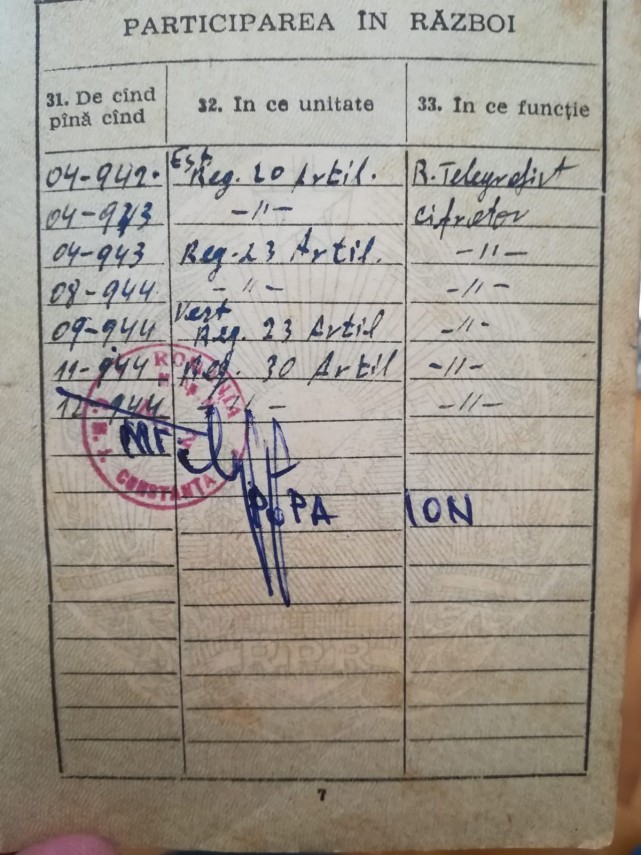 PARTICIPAREA ÎN RĂZBOI
31. De cînd pînă cînd
32. In ce unitate
33. In ce funcție
Est
04-942. Reg. 20 Artil. R. Telegrafist
04-943 -"- cifrator
04-943 Reg. 23 Artil. -"-
08-944 -"- -"-
Vest
09-944 Reg. 23 Artil -"-
11-944 Reg. 30 Artil -"-
12-944 -"- -"-
MF
CONSTANȚA
POPA ION
RPR
7